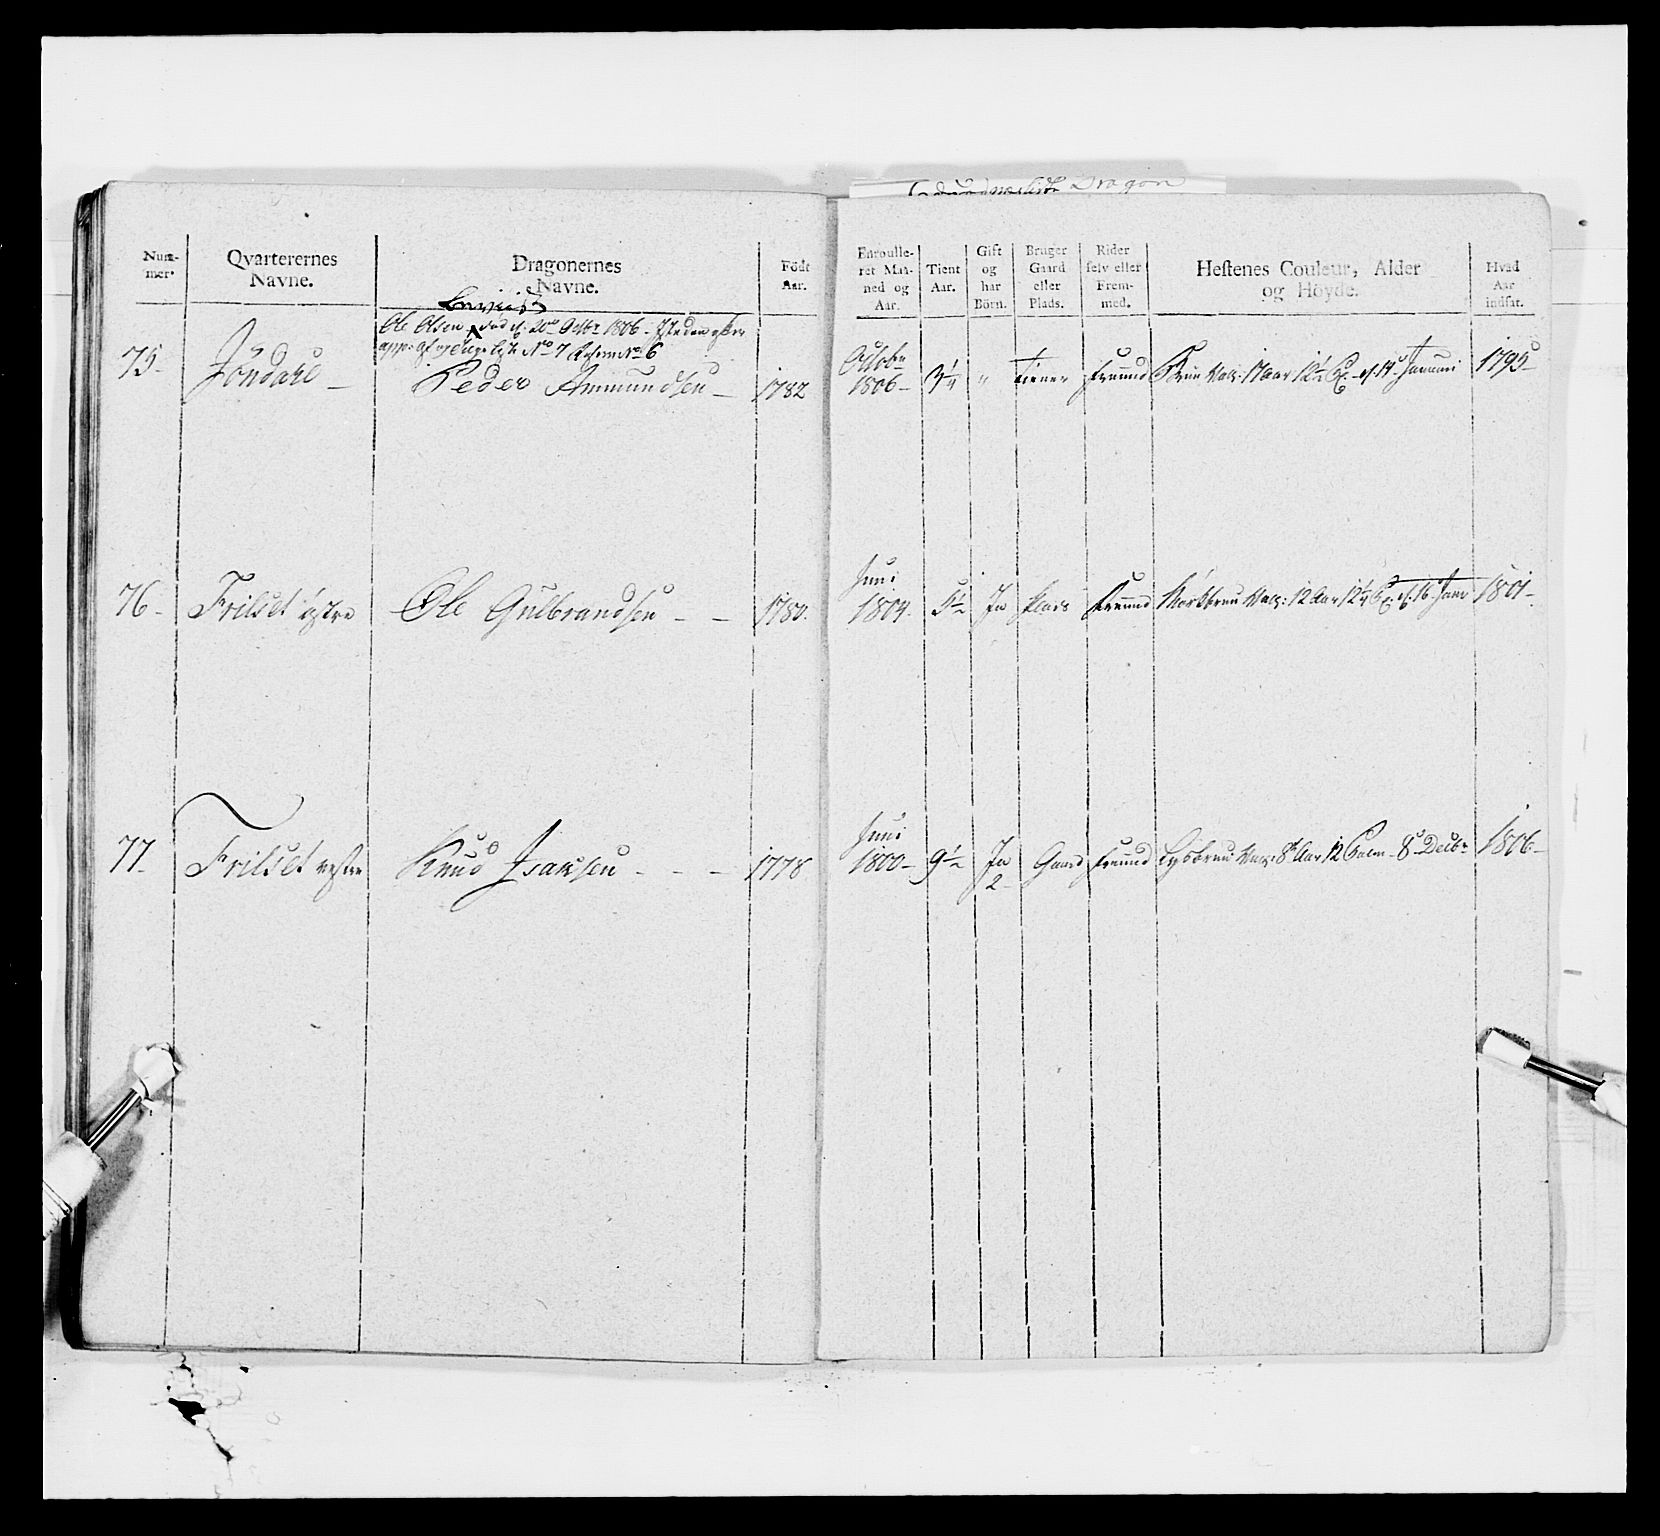 Dragon
Num-
mer.
Qvarterernes
Navne.
Dragonernes
Navne.
Född
Aar.
Enroulle-
ret Maa-
ned og
Aar.
Tient
Aar.
Gift
og
har
Börn.
Bruger
Gaard
eller
Plads.
Rider
selv eller
Frem-
med.
Hestenes Couleur, Alder
og Höyde.
Hvad
Aar
indsat.
Ole Olsen død d. 20de Octbr 1806.
No 7 No 6
75. Jöndahl – Peder Ammundsen – 1782 Octobr 1806 – 3¼ " tiener fremmd Brun Val: 17 Aar 12½ d. 14. Januari 1795 –
76. Frilset östre Ole Gulbrandsen – – 1780. Juni 1804. 5½ Ja Plads fremmd Mörkbrun Val: 12 Aar 12¼ d. 16. Janr 1801 –
77. Frilset vestre Knud Isaksen – – – 1778. Juni 1800 – 9½ Ja 2 – Gaard fremmd Lysbrun Val: 8 Aar 12 Palm – 8 Decbr 1806 –